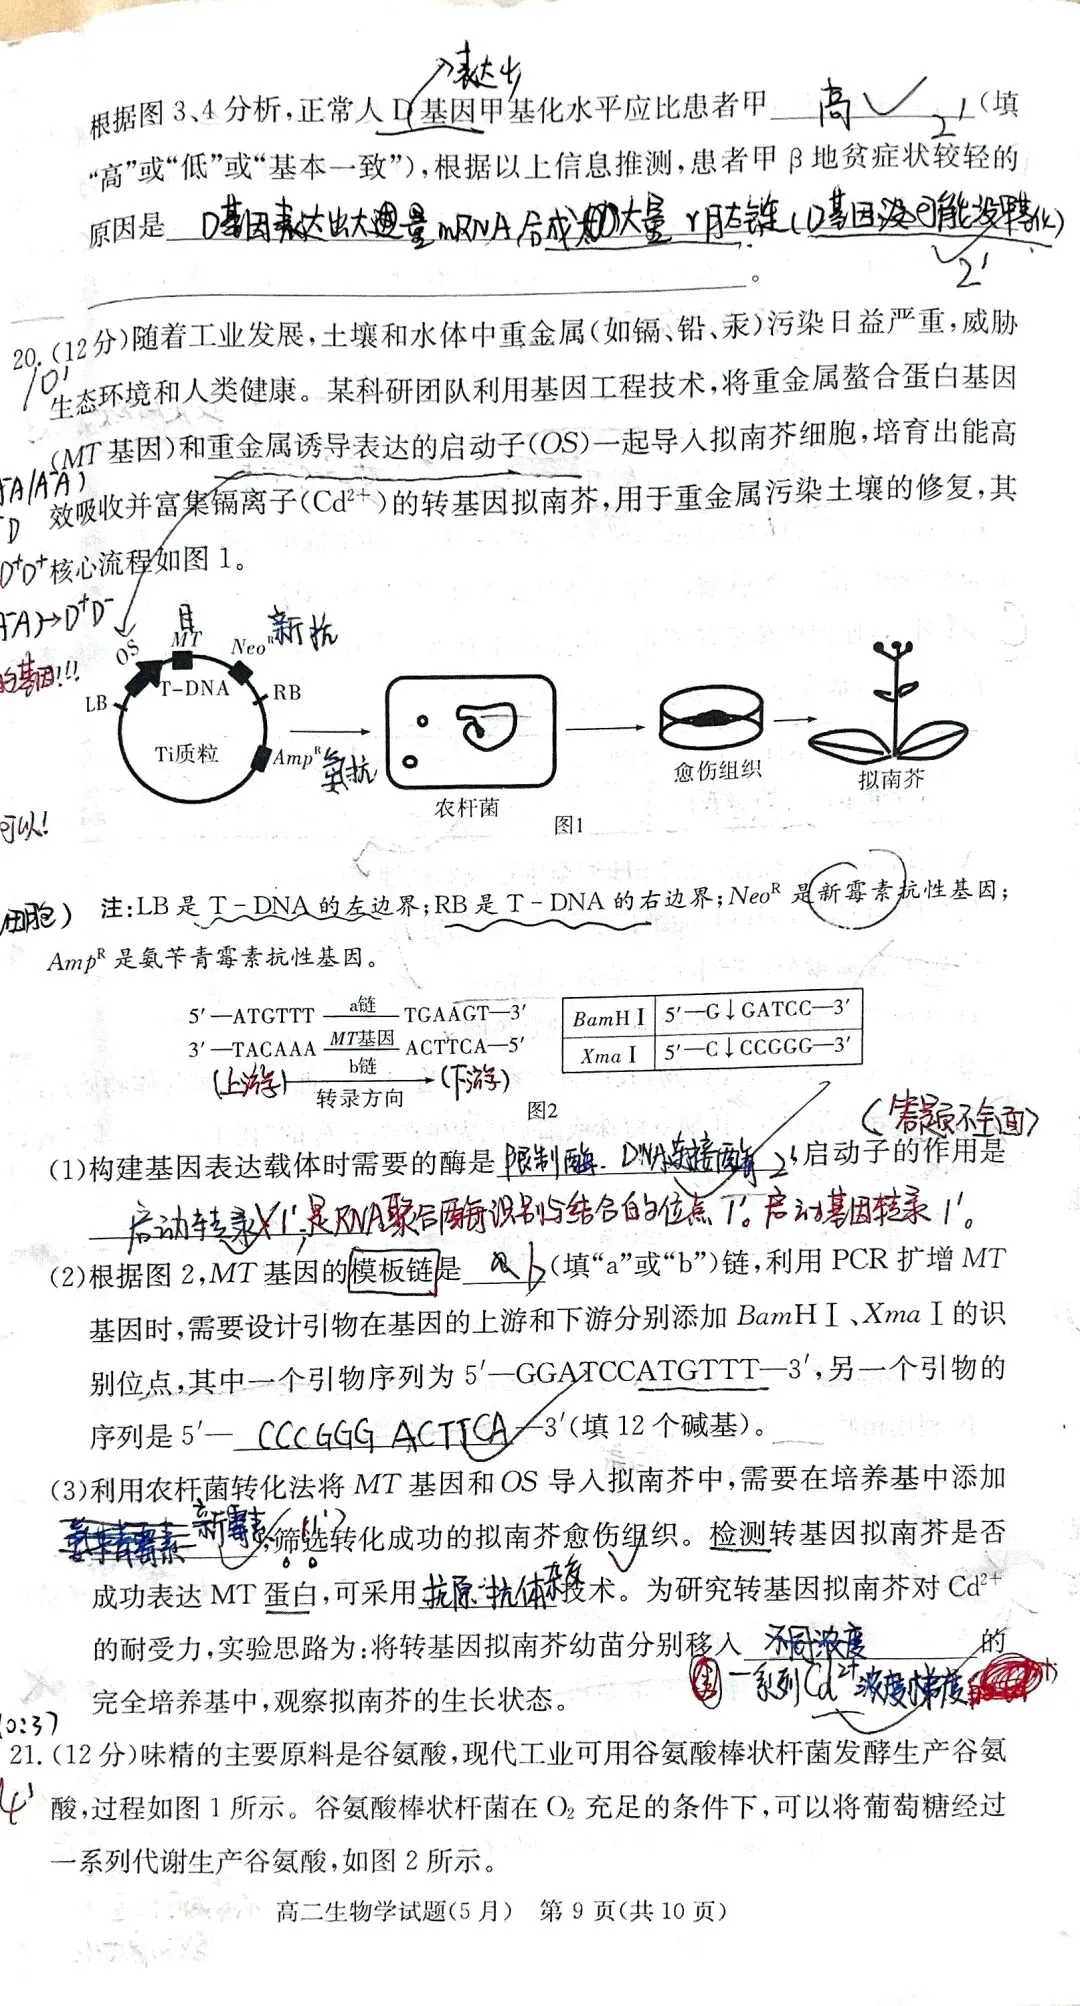 表达出
根据图3、4分析,正常人D基因甲基化水平应比患者甲 高 2' (填
“高”或“低”或“基本一致”),根据以上信息推测,患者甲β地贫症状较轻的
原因是 D基因表达出大量mRNA,合成大量γ肽链(D基因可能没甲基化)
2'
。
20.(12分)随着工业发展,土壤和水体中重金属(如镉、铅、汞)污染日益严重,威胁
10'
生态环境和人类健康。某科研团队利用基因工程技术,将重金属螯合蛋白基因
(MT基因)和重金属诱导表达的启动子(OS)一起导入拟南芥细胞,培育出能高
效吸收并富集镉离子(Cd²⁺)的转基因拟南芥,用于重金属污染土壤的修复,其
D⁺D⁺ 核心流程如图1。
A⁻A)→D⁺D⁻
基因!!!
目 新抗
OS MT Neoᴿ
LB T-DNA RB
Ti质粒 Ampᴿ 氨抗
农杆菌 愈伤组织 拟南芥
图1
可以!
细胞)
注:LB是T-DNA的左边界;RB是T-DNA的右边界;Neoᴿ是新霉素抗性基因;
Ampᴿ是氨苄青霉素抗性基因。
5'—ATGTTT a链 TGAAGT—3'
3'—TACAAA MT基因 ACTTCA—5'
b链
(上游) 转录方向 (下游)
BamHⅠ 5'—G↓GATCC—3'
XmaⅠ 5'—C↓CCGGG—3'
图2
(答题不全面)
(1)构建基因表达载体时需要的酶是 限制酶、DNA连接酶 2' 启动子的作用是
启动转录 1' ;是RNA聚合酶识别与结合的位点1'。启动基因转录1'。
(2)根据图2,MT基因的模板链是 a b (填“a”或“b”)链,利用PCR扩增MT
基因时,需要设计引物在基因的上游和下游分别添加BamHⅠ、XmaⅠ的识
别位点,其中一个引物序列为5'—GGATCCATGTTT—3',另一个引物的
序列是5'— CCCGGG ACTTCA —3'(填12个碱基)。
(3)利用农杆菌转化法将MT基因和OS导入拟南芥中,需要在培养基中添加
氨苄青霉素 新霉素 (1') 筛选转化成功的拟南芥愈伤组织。检测转基因拟南芥是否
成功表达MT蛋白,可采用 抗原-抗体杂交 技术。为研究转基因拟南芥对Cd²⁺
的耐受力,实验思路为:将转基因拟南芥幼苗分别移入 不同浓度 的
一系列Cd²⁺浓度梯度
完全培养基中,观察拟南芥的生长状态。
10:37
21.(12分)味精的主要原料是谷氨酸,现代工业可用谷氨酸棒状杆菌发酵生产谷氨
酸,过程如图1所示。谷氨酸棒状杆菌在O₂充足的条件下,可以将葡萄糖经过
一系列代谢生产谷氨酸,如图2所示。
高二生物学试题(5月) 第9页(共10页)